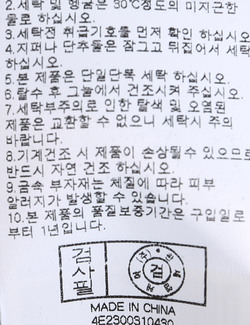 2.세탁 및 헹굼은 30℃정도의 미지근한
물로 하십시오.
3.세탁전 취급기호를 먼저 확인 하십시오
4.지퍼나 단추물은 잠그고 뒤집어서 세탁
하십시오.
5.본 제품은 단일단독 세탁 하십시오.
6.탈수 후 그늘에서 건조시켜 주십시오.
7.세탁부주의로 인한 탈색 및 오염된
제품은 교환할 수 없으니 세탁시 주의
바랍니다.
8.기계건조 시 제품이 손상될수 있으므로
반드시 자연 건조 하십시오.
9.금속 부자재는 체질에 따라 피부
알러지가 발생할 수 있습니다.
10.본 제품의 품질보증기간은 구입일로
부터 1년입니다.
검사필
검
MADE IN CHINA
4E2300310430